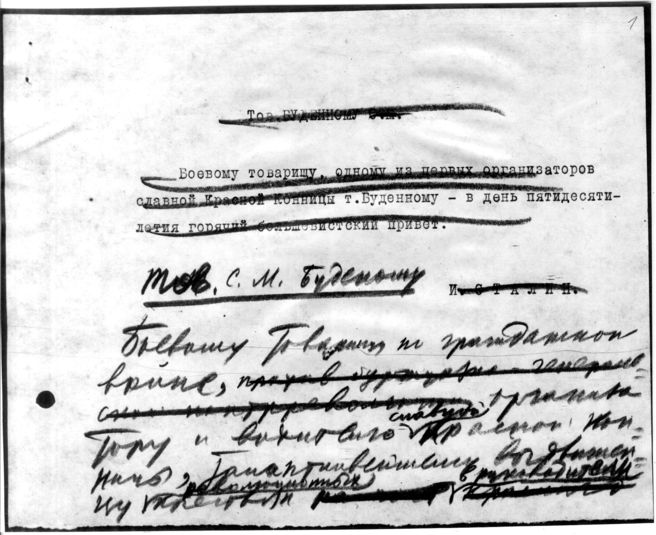 1
Тов. БУДЕННОМУ С.М.
Боевому товарищу, одному из первых организаторов
славной Красной Конницы т.Буденному - в день пятидесяти-
летия горячий большевистский привет.
И. СТАЛИН.
Тов. С. М. Буденому
Боевому товарищу по гражданской
войне, против буржуазно-
организа
тору и славной Красной Кон
ницы, талантливейшему выдвижен
цу революционных